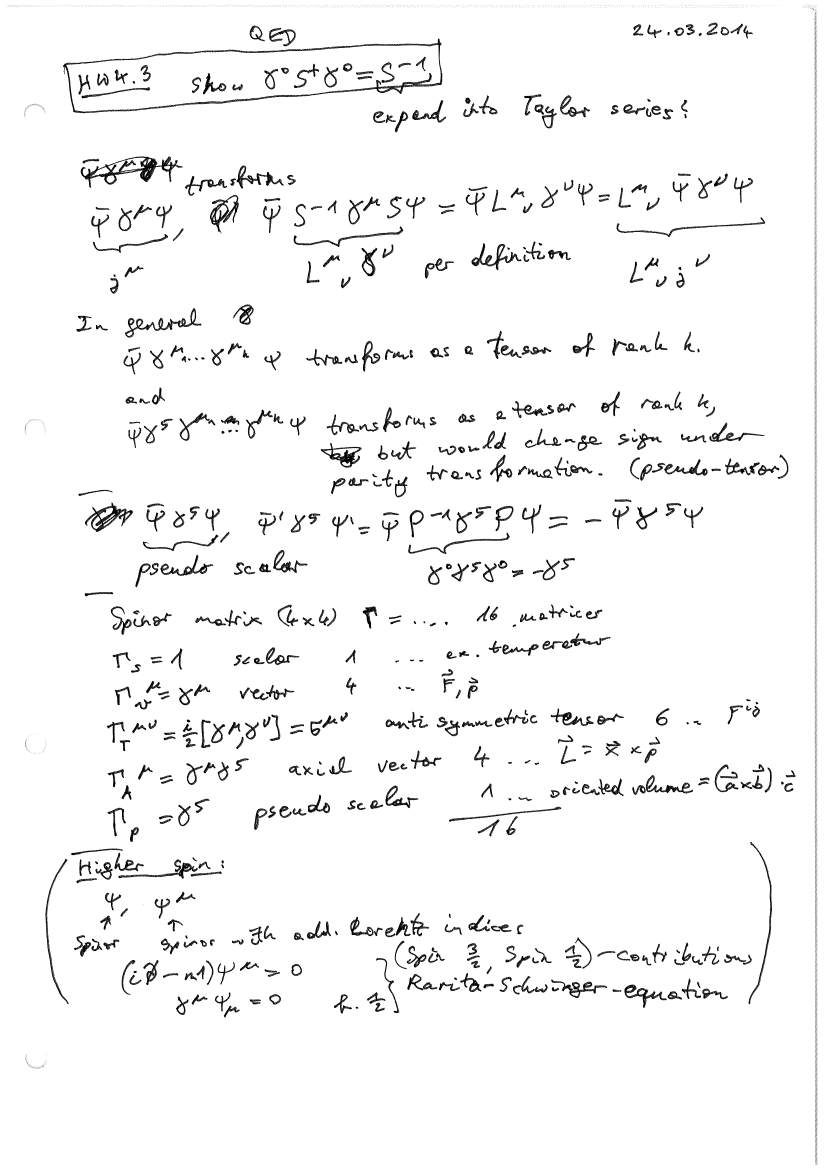 QED 24.03.2014
HW4.3 Show γ⁰S†γ⁰ = S⁻¹
expend into Taylor series!
transforms
Ψ̄γ^μΨ, Ψ̄ S⁻¹γ^μSΨ = Ψ̄L^μ_ν γ^νΨ = L^μ_ν Ψ̄γ^νΨ
j^μ L^μ_ν γ^ν per definition L^μ_ν j^ν
In general
Ψ̄γ^μ₁...γ^μₖ Ψ transforms as a tensor of rank k.
and
Ψ̄γ⁵γ^μ₁...γ^μₖ Ψ transforms as a tensor of rank k,
but would change sign under
parity transformation. (pseudo-tensor)
Ψ̄γ⁵Ψ, Ψ̄'γ⁵Ψ' = Ψ̄ P⁻¹γ⁵P Ψ = -Ψ̄γ⁵Ψ
pseudo scalar γ⁰γ⁵γ⁰ = -γ⁵
Spinor matrix (4x4) Γ = .... 16 matrices
Γ_S = 1 scalar 1 ... ex. temperatur
Γ_V^μ = γ^μ vector 4 ... F⃗, p⃗
Γ_T^μν = i/2 [γ^μ, γ^ν] = σ^μν anti symmetric tensor 6 .. F^ij
Γ_A^μ = γ^μγ⁵ axial vector 4 .... L⃗ = x⃗ × p⃗
Γ_p = γ⁵ pseudo scalar 1 ... oriented volume = (a⃗×b⃗)·c⃗
16
Higher spin:
Ψ, Ψ^μ
↑ ↑
Spinor spinor with add. Lorentz indices
(i∂̸ - m1)Ψ^μ = 0 (Spin 3/2, Spin 1/2) - contributions
γ^μ Ψ_μ = 0 k. 1/2 Rarita-Schwinger-equation